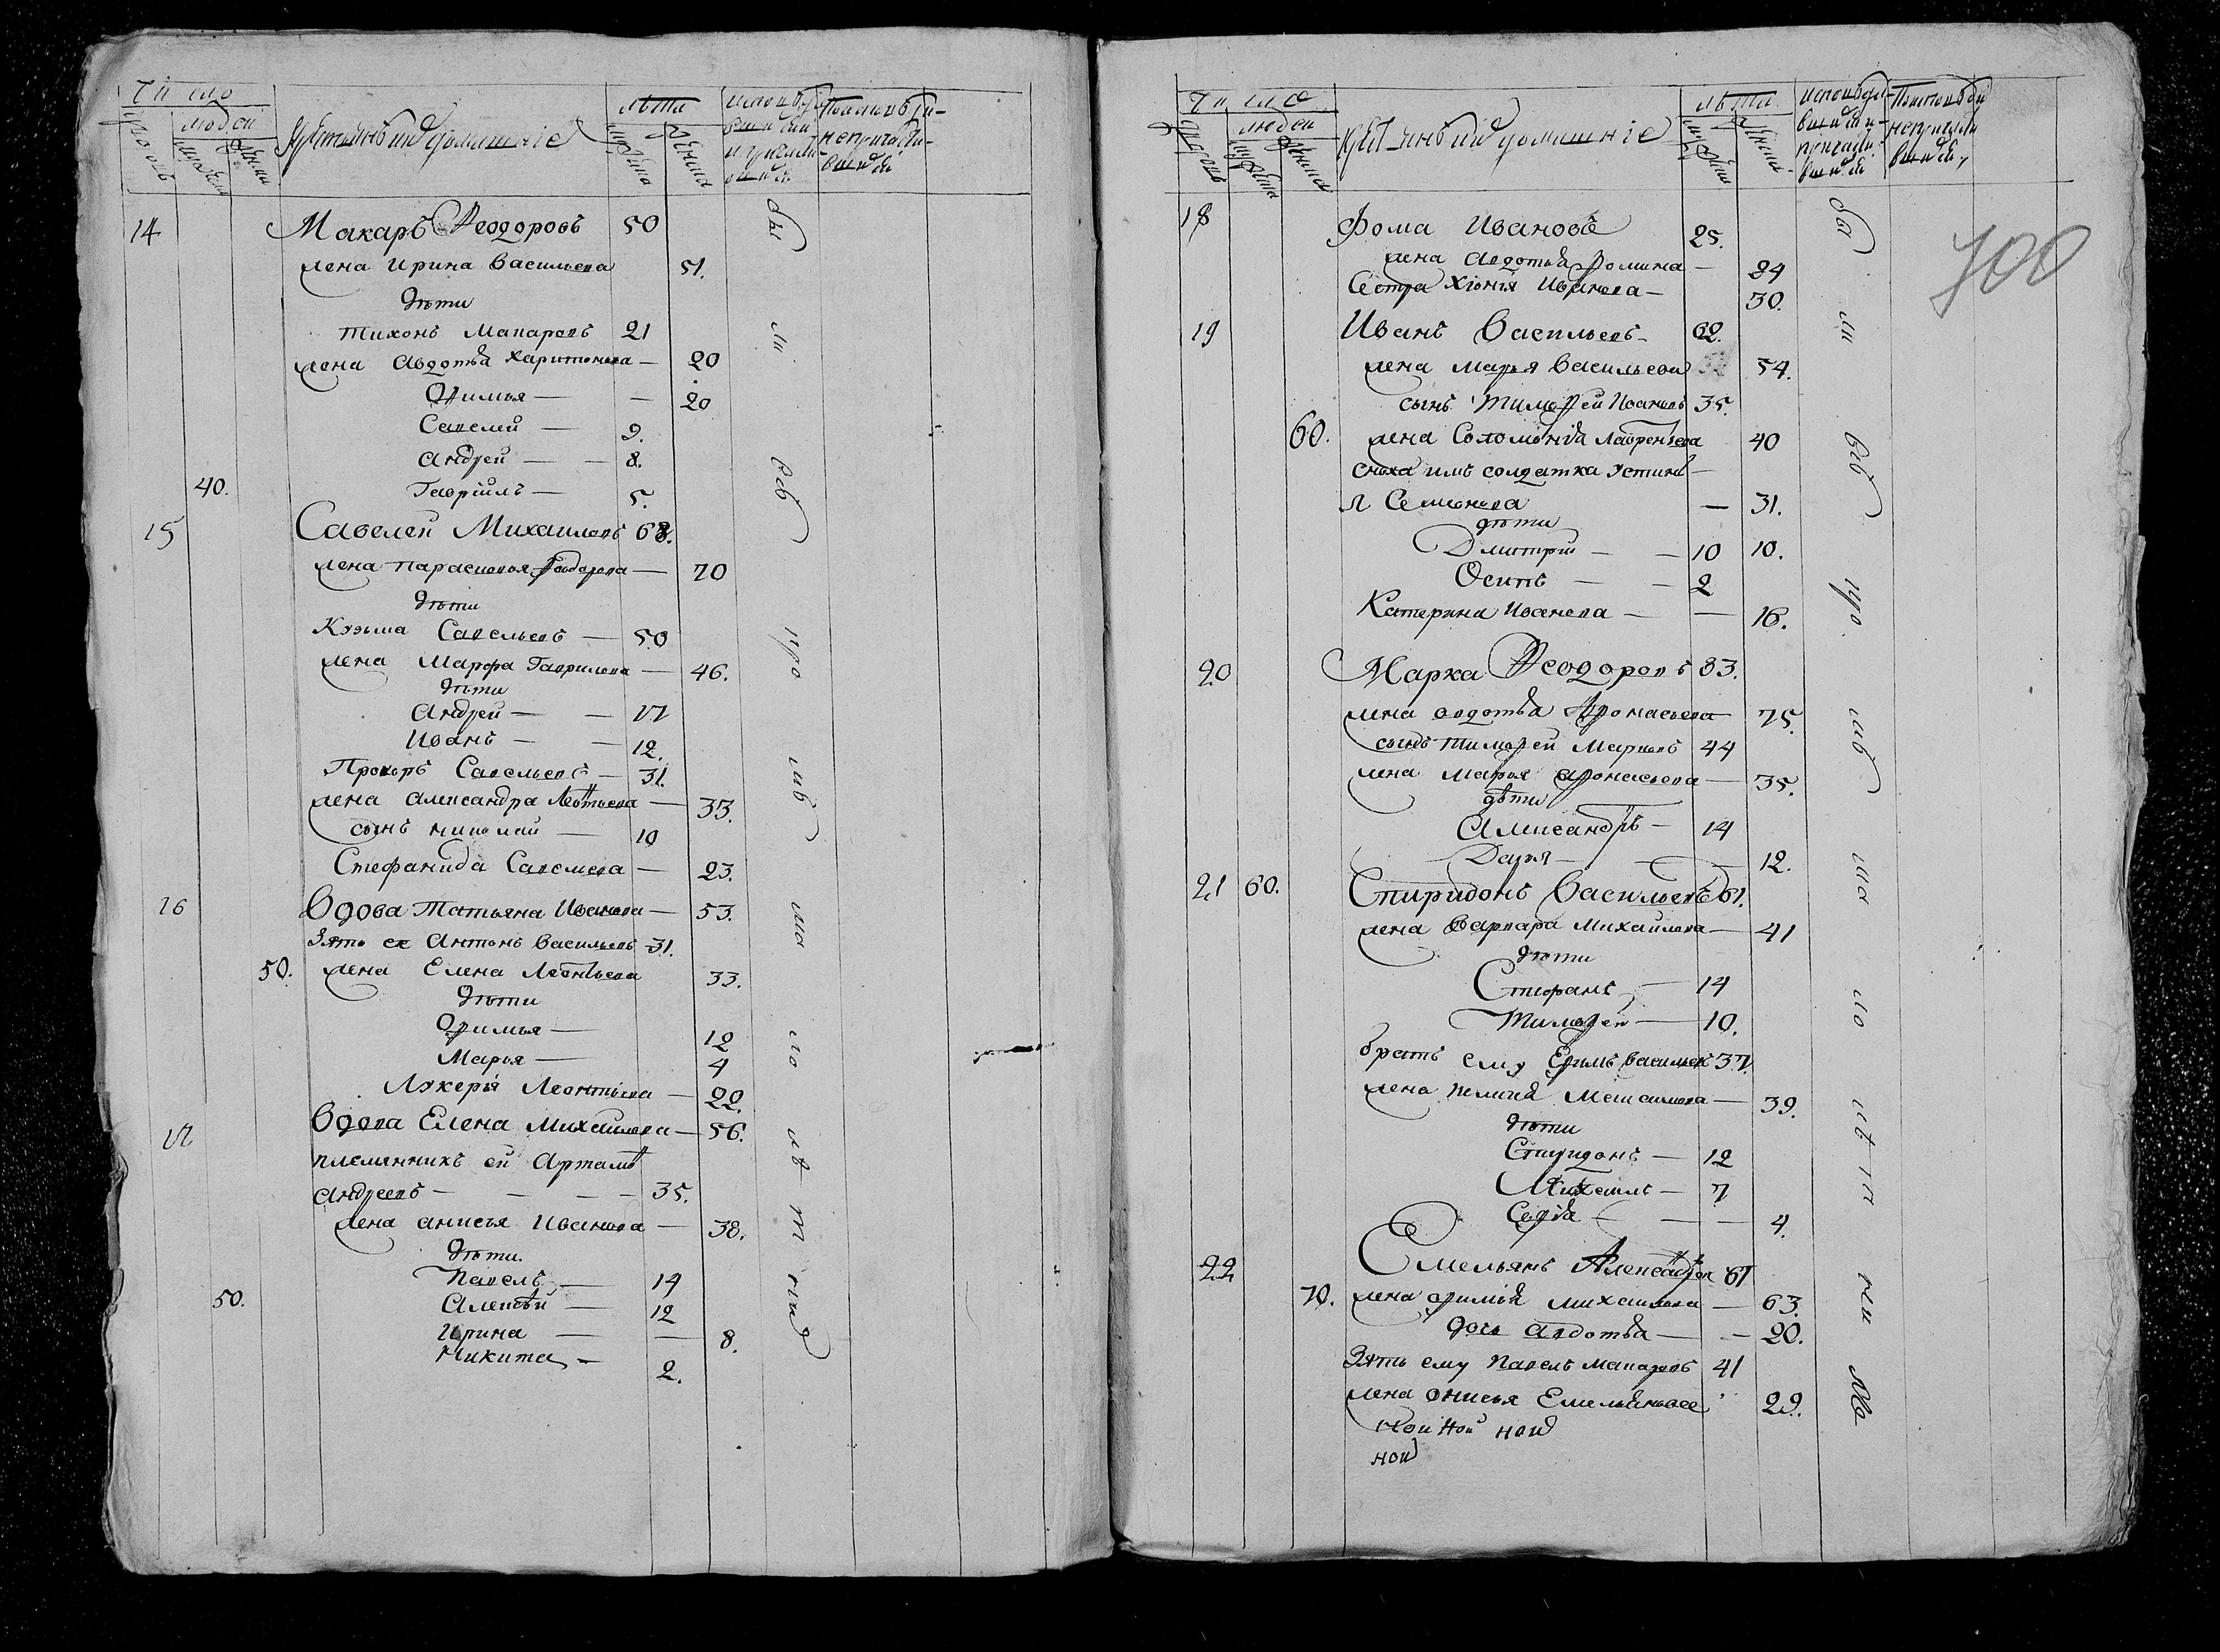 Число
людей
лѣта
Крестьяне и ид домашніе
14 Макаръ Ѳеодоровъ 50
жена Ирина Васильева 51.
дѣти
Тихонъ Макаровъ 21
жена Авдотья Харитонова — 20
Ѳимья — — 20
Савелей — 9.
Андрей — — 8.
40. Гавріилъ — 5.
15 Савелей Михаиловъ 68.
жена Парасковья Ѳеодорова — 70
дѣти
Козьма Савельевъ — 50
жена Марфа Гаврилова — 46.
дѣти
Андрей — — 17
Иванъ — — 12.
Прохоръ Савельевъ — 31.
жена Александра Леонтьева — 33.
сынъ Николай — 10
Стефанида Савельева — 23.
16 Вдова Татьяна Иванова — 53.
Зять ее Антонъ Васильевъ — 31.
50. жена Елена Леонтьева 33.
дѣти
Ѳимья — 12
Марья — 4
Лукерія Леонтьева — 22.
17 Вдова Елена Михаилова — 56.
племянникъ ей
Андреевъ — — — — 35.
жена Анисья Иванова — 38.
дѣти.
Павелъ — 14
50. Алексѣй — 12
Ирина — — 8.
Никита — 2.
Число
людей
лѣта
домашніе
700
18 Фома Ивановъ 25.
жена Авдотья Фомина — 24
Сестра Хіонія Иванова — 30.
19 Иванъ Васильевъ — 62.
жена Марья Васильева 54.
сынъ Тимофей Ивановъ 35.
60. жена Соломонія Лаврентьева 40
сноха имъ солдатка Устинь —
я Семионова — 31.
дѣти
Дмитрій — — 10 10.
Осипъ — — 2
Катерина Иванова — — 16.
20 Марка Ѳеодоровъ 83.
жена Авдотья Афонасьева 75.
сынъ Тимофей Марковъ 44
жена Марья Афонасьева — 35.
дѣти
Александръ — 14
Дарья — — — 12.
21 60. Спиридонъ Васильевъ 61.
жена Варвара Михайлова — 41
дѣти
Стефанъ — 14
Тимофей — 10.
братъ ему Ефимъ Васильевъ 37.
жена 39.
дѣти
Спиридонъ — 12
Михаилъ — 7
Софія — — — 4.
22 Емельянъ 61
70. жена Ѳимія Михаилова — 63.
дочь Авдотья — — 20.
Зять ему Павелъ Макаровъ 41
жена Онисья 29.
ной ной ной
ной